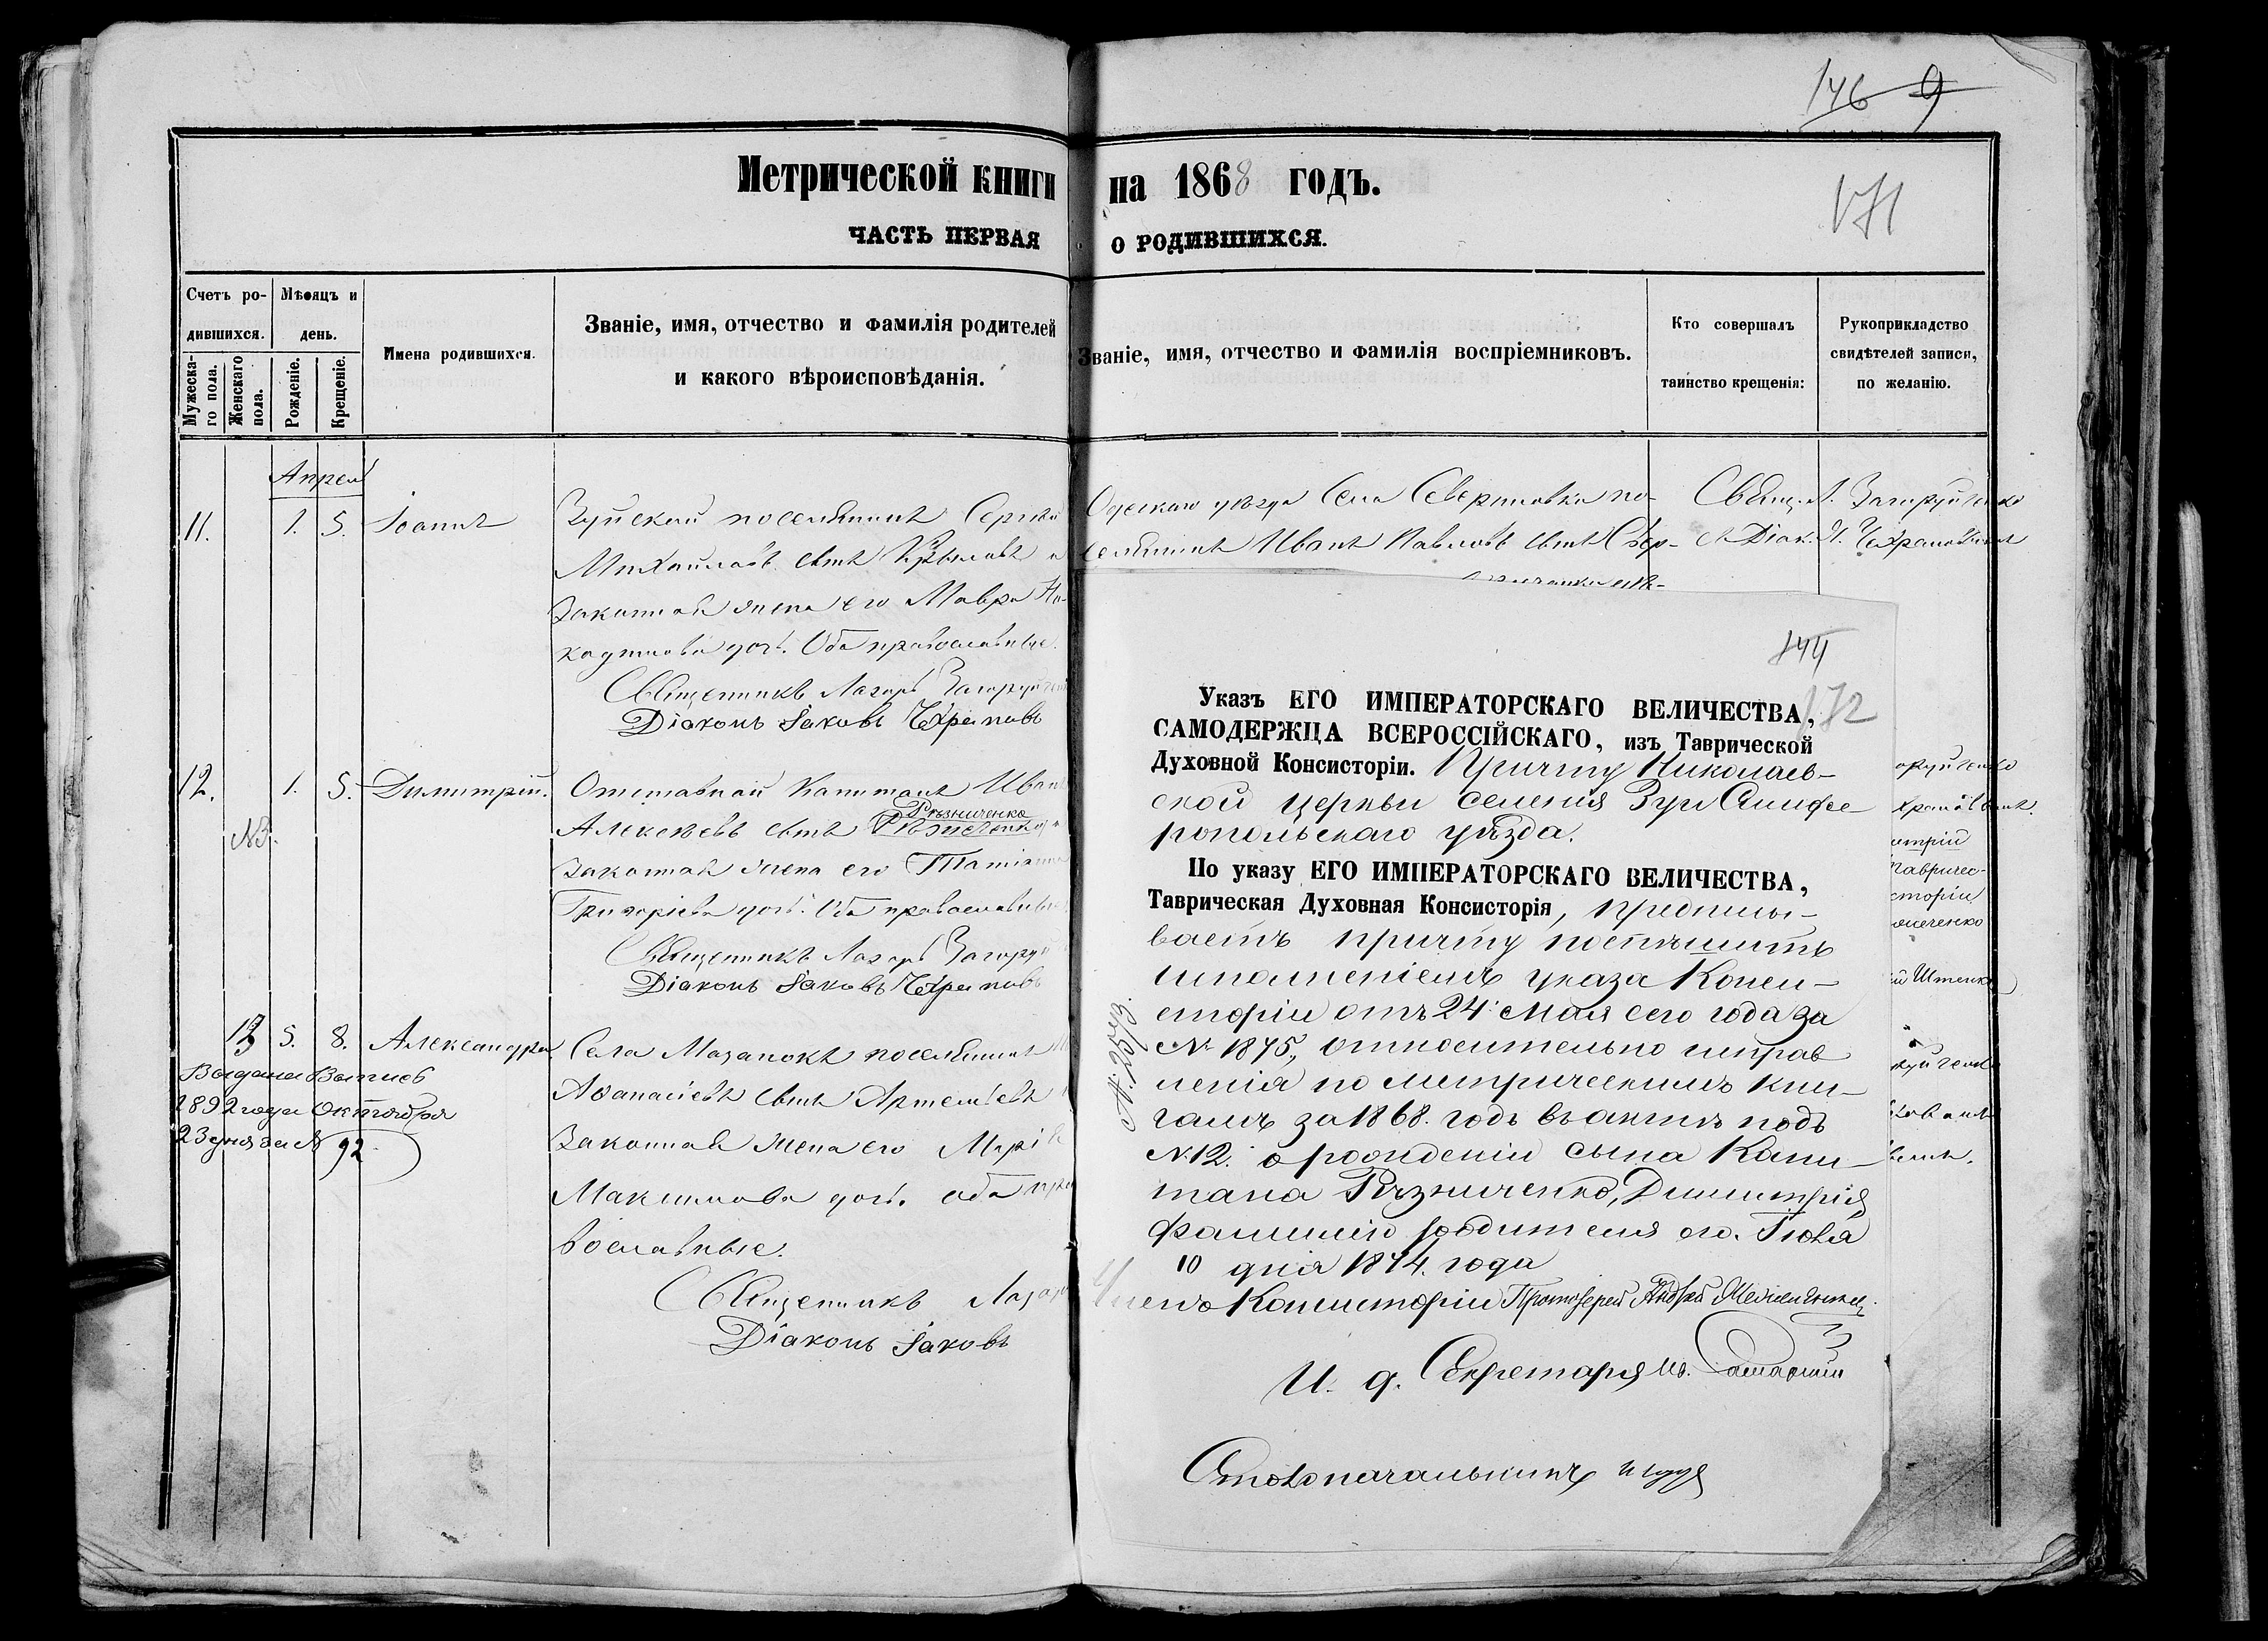 146 9
171
Метрической книги на 1868 годъ.
ЧАСТЬ ПЕРВАЯ О РОДИВШИХСЯ.
Счетъ ро-
дившихся.
Мужеска-
го пола.
Женскаго
пола.
Мѣсяцъ и
день.
Рожденіе.
Крещеніе.
Имена родившихся.
Званіе, имя, отчество и фамилія родителей
и какого вѣроисповѣданія.
Званіе, имя, отчество и фамилія воспріемниковъ.
Кто совершалъ
таинство крещенія:
Рукоприкладство
свидѣтелей записи,
по желанію.
Апрель
11. 1. 5. Іоаннъ
Зуйскій поселянинъ Сергѣй
Михайловъ сынъ Крыловъ и
Законная жена его Мавра
дочь. Оба православные.
Священникъ Лазарь Загоруйченко
Діаконъ Іаковъ Чехрановъ
Одескаго уѣзда Села Севериновки по-
селянинъ Иванъ Павловъ сынъ
Свящ. Л. Загоруйченко
и Діак. Я.
12. 1. 5. Димитрій.
№3.
Отставной Капитанъ Иванъ
Рѣзниченко
Алексѣевъ сынъ
Законная жена его Татіана
Григоріева дочь. Оба православные
Священникъ Лазарь Загоруй
Діаконъ Іаковъ Чехрановъ
13 5. 8. Александра
Выдана Выпись
1892 года Октября
23 дня за № 92
Села Мазанокъ поселянинъ
Аѳанасіевъ сынъ Артемьевъ
Законная жена его Марія
Максимова дочь. оба пра
вославные.
Священникъ Лазарь
Діаконъ Іаковъ
144
172
Указъ ЕГО ИМПЕРАТОРСКАГО ВЕЛИЧЕСТВА,
САМОДЕРЖЦА ВСЕРОССІЙСКАГО, изъ Таврической
Духовной Консисторіи. Причту Николаев-
ской церкви селенія Зуи Симфе-
ропольскаго уѣзда.
По указу ЕГО ИМПЕРАТОРСКАГО ВЕЛИЧЕСТВА,
Таврическая Духовная Консисторія, предписы-
ваетъ причту поспѣшить
исполненіемъ указа Конси-
сторіи отъ 24 Мая сего года за
№ 1875, относительно исправ
ленія по метрическимъ кни-
гамъ за 1868. годъ въ актѣ подъ
№ 12. о рожденіи сына Капи-
тана Рѣзниченко, Димитрія,
фамилію родителя его. Іюля
10 дня 1874. года
Членъ Консисторіи Протоіерей Андрей
И. д. Секретаря
Столоначальникъ
№ 2573.
оруйченко
итрій
тавричес-
сторіи